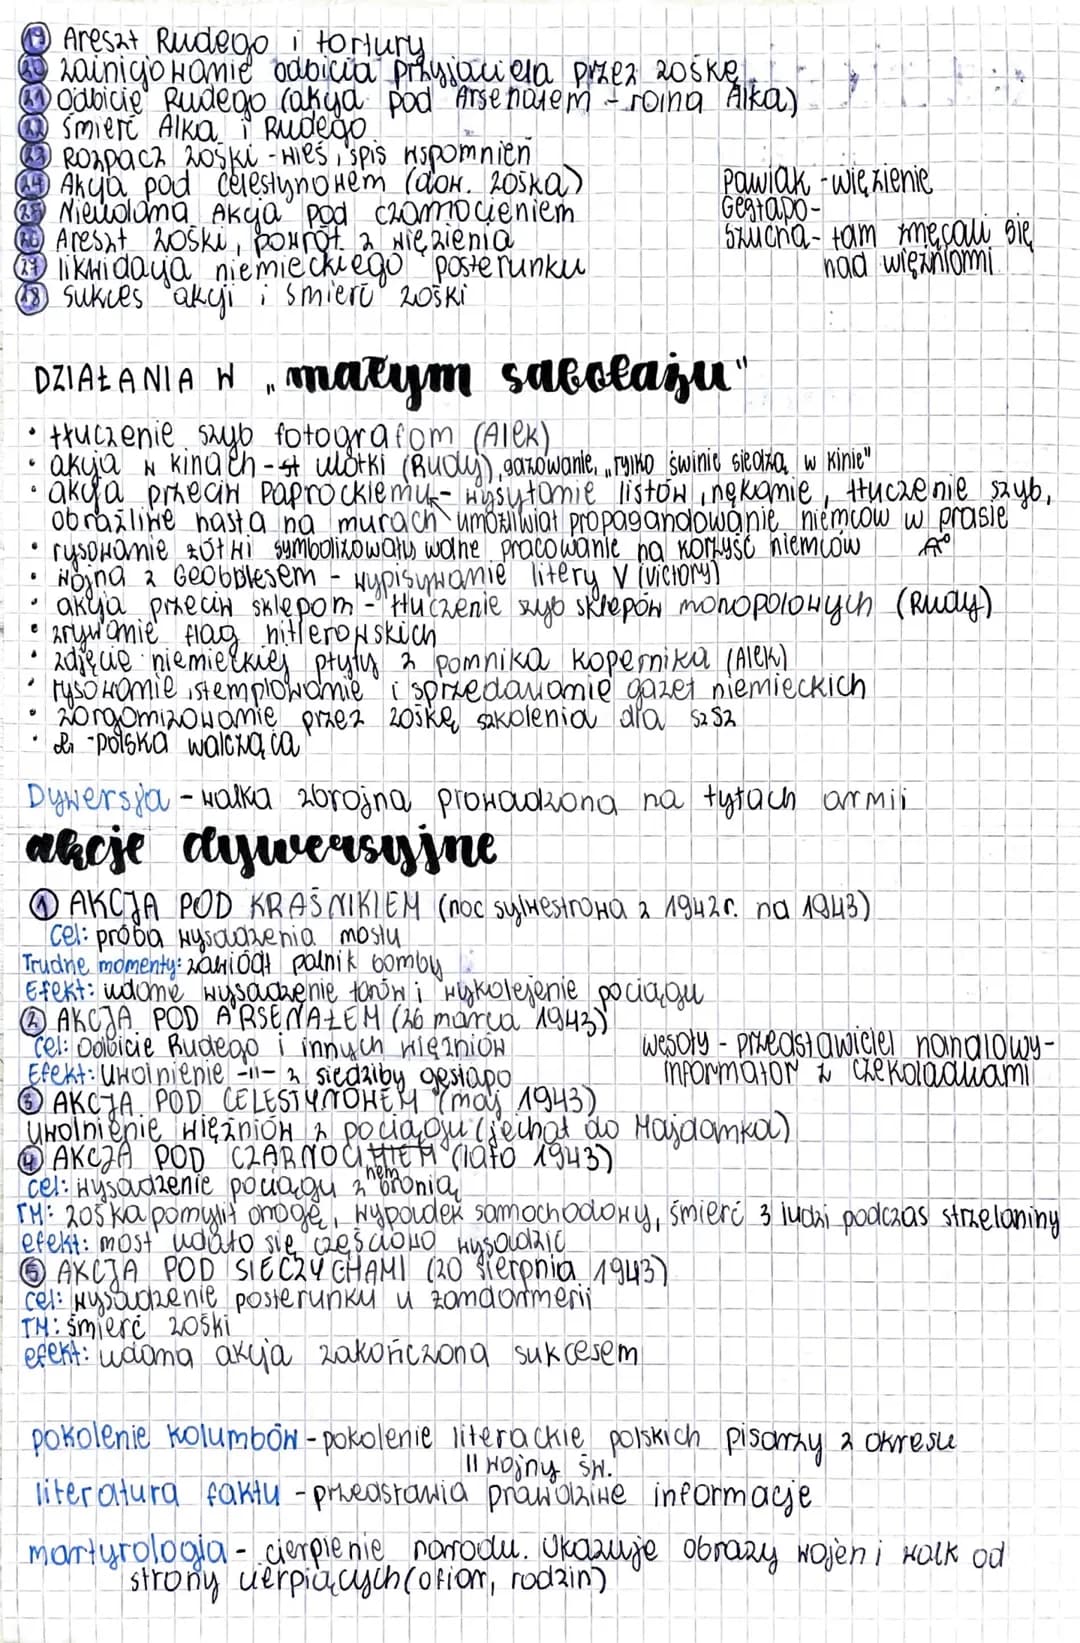 19 Areszt Rudego i tortury
20 zainicjowanie odbicia przyjaciela przez Zośkę
21 Odbicie Rudego (akcja pod Arsenałem - rana Alka)
22 śmierć Alka i Rudego
23 Rozpacz Zośki - wieś, spis wspomnień
24 Akcja pod Celestynowem (dow. Zośka)
25 Nieudana Akcja pod czarnocieniem
26 Areszt Zośki, powrót z więzienia
27 likwidacja niemieckiego posterunku
28 sukces akcji i śmierć Zośki
Pawiak - więzienie
Gestapo -
Szucha - tam męcali się
nad więźniami
DZIAŁANIA W „małym sabotażu"
• tłuczenie szyb fotografom (Alek)
• akcja w kinach - ulotki (Rudy), gazowanie, „tylko świnie siedzą w kinie"
• akcja przeciw Paprockiemu - wysyłanie listów, nękanie, tłuczenie szyb,
obraźliwe hasła na murach umożliwiał propagandowanie niemców w prasie
• rysowanie żółwi symbolizowały wolne pracowanie na korzyść niemców
• wojna z Geobblesem - wypisywanie litery V (victory)
• akcja przeciw sklepom - tłuczenie szyb sklepów monopolowych (Rudy)
• zrywanie flag hitlerowskich
• zdjęcie niemieckiej płyty z pomnika Kopernika (Alek)
• rysowanie, stemplowanie i sprzedawanie gazet niemieckich
• zorganizowanie przez Zośkę szkolenia dla SzSz
• - polska walcząca
Dywersja - walka zbrojna prowadzona na tyłach armii
akcje dywersyjne
1 AKCJA POD KRAŚNIKIEM (noc sylwestrowa z 1942r. na 1943)
Cel: próba wysadzenia mostu
Trudne momenty: zawiódł palnik bomby
Efekt: udane wysadzenie torów i wykolejenie pociągu
2 AKCJA POD ARSENAŁEM (26 marca 1943)
Cel: Odbicie Rudego i innych więźniów
Efekt: uwolnienie -11- z siedziby gestapo
wesoły - przedstawiciel handlowy -
informator z czekoladkami
3 AKCJA POD CELESTYNOWEM (maj 1943)
uwolnienie więźniów z pociągu (jechał do Majdanka)
4 AKCJA POD CZARNOCINEM (lato 1943)
cel: wysadzenie pociągu z bronią
TM: Zośka pomylił drogę, wypadek samochodowy, śmierć 3 ludzi podczas strzelaniny
efekt: most udało się częściowo wysadzić
5 AKCJA POD SIECZYCHAMI (20 sierpnia 1943)
cel: wysadzenie posterunku u żandarmerii
TM: śmierć Zośki
efekt: udana akcja zakończona sukcesem
pokolenie kolumbów - pokolenie literackie polskich pisarzy z okresu
II wojny św.
literatura faktu - przedstawia prawdziwe informacje
martyrologia - cierpienie narodu. Ukazuje obrazy wojen i walk od
strony cierpiących (ofiar, rodzin)